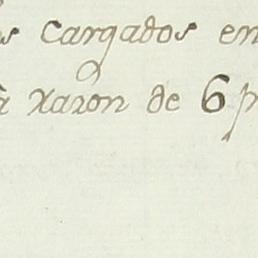 s cargados en
à razon de 6 p